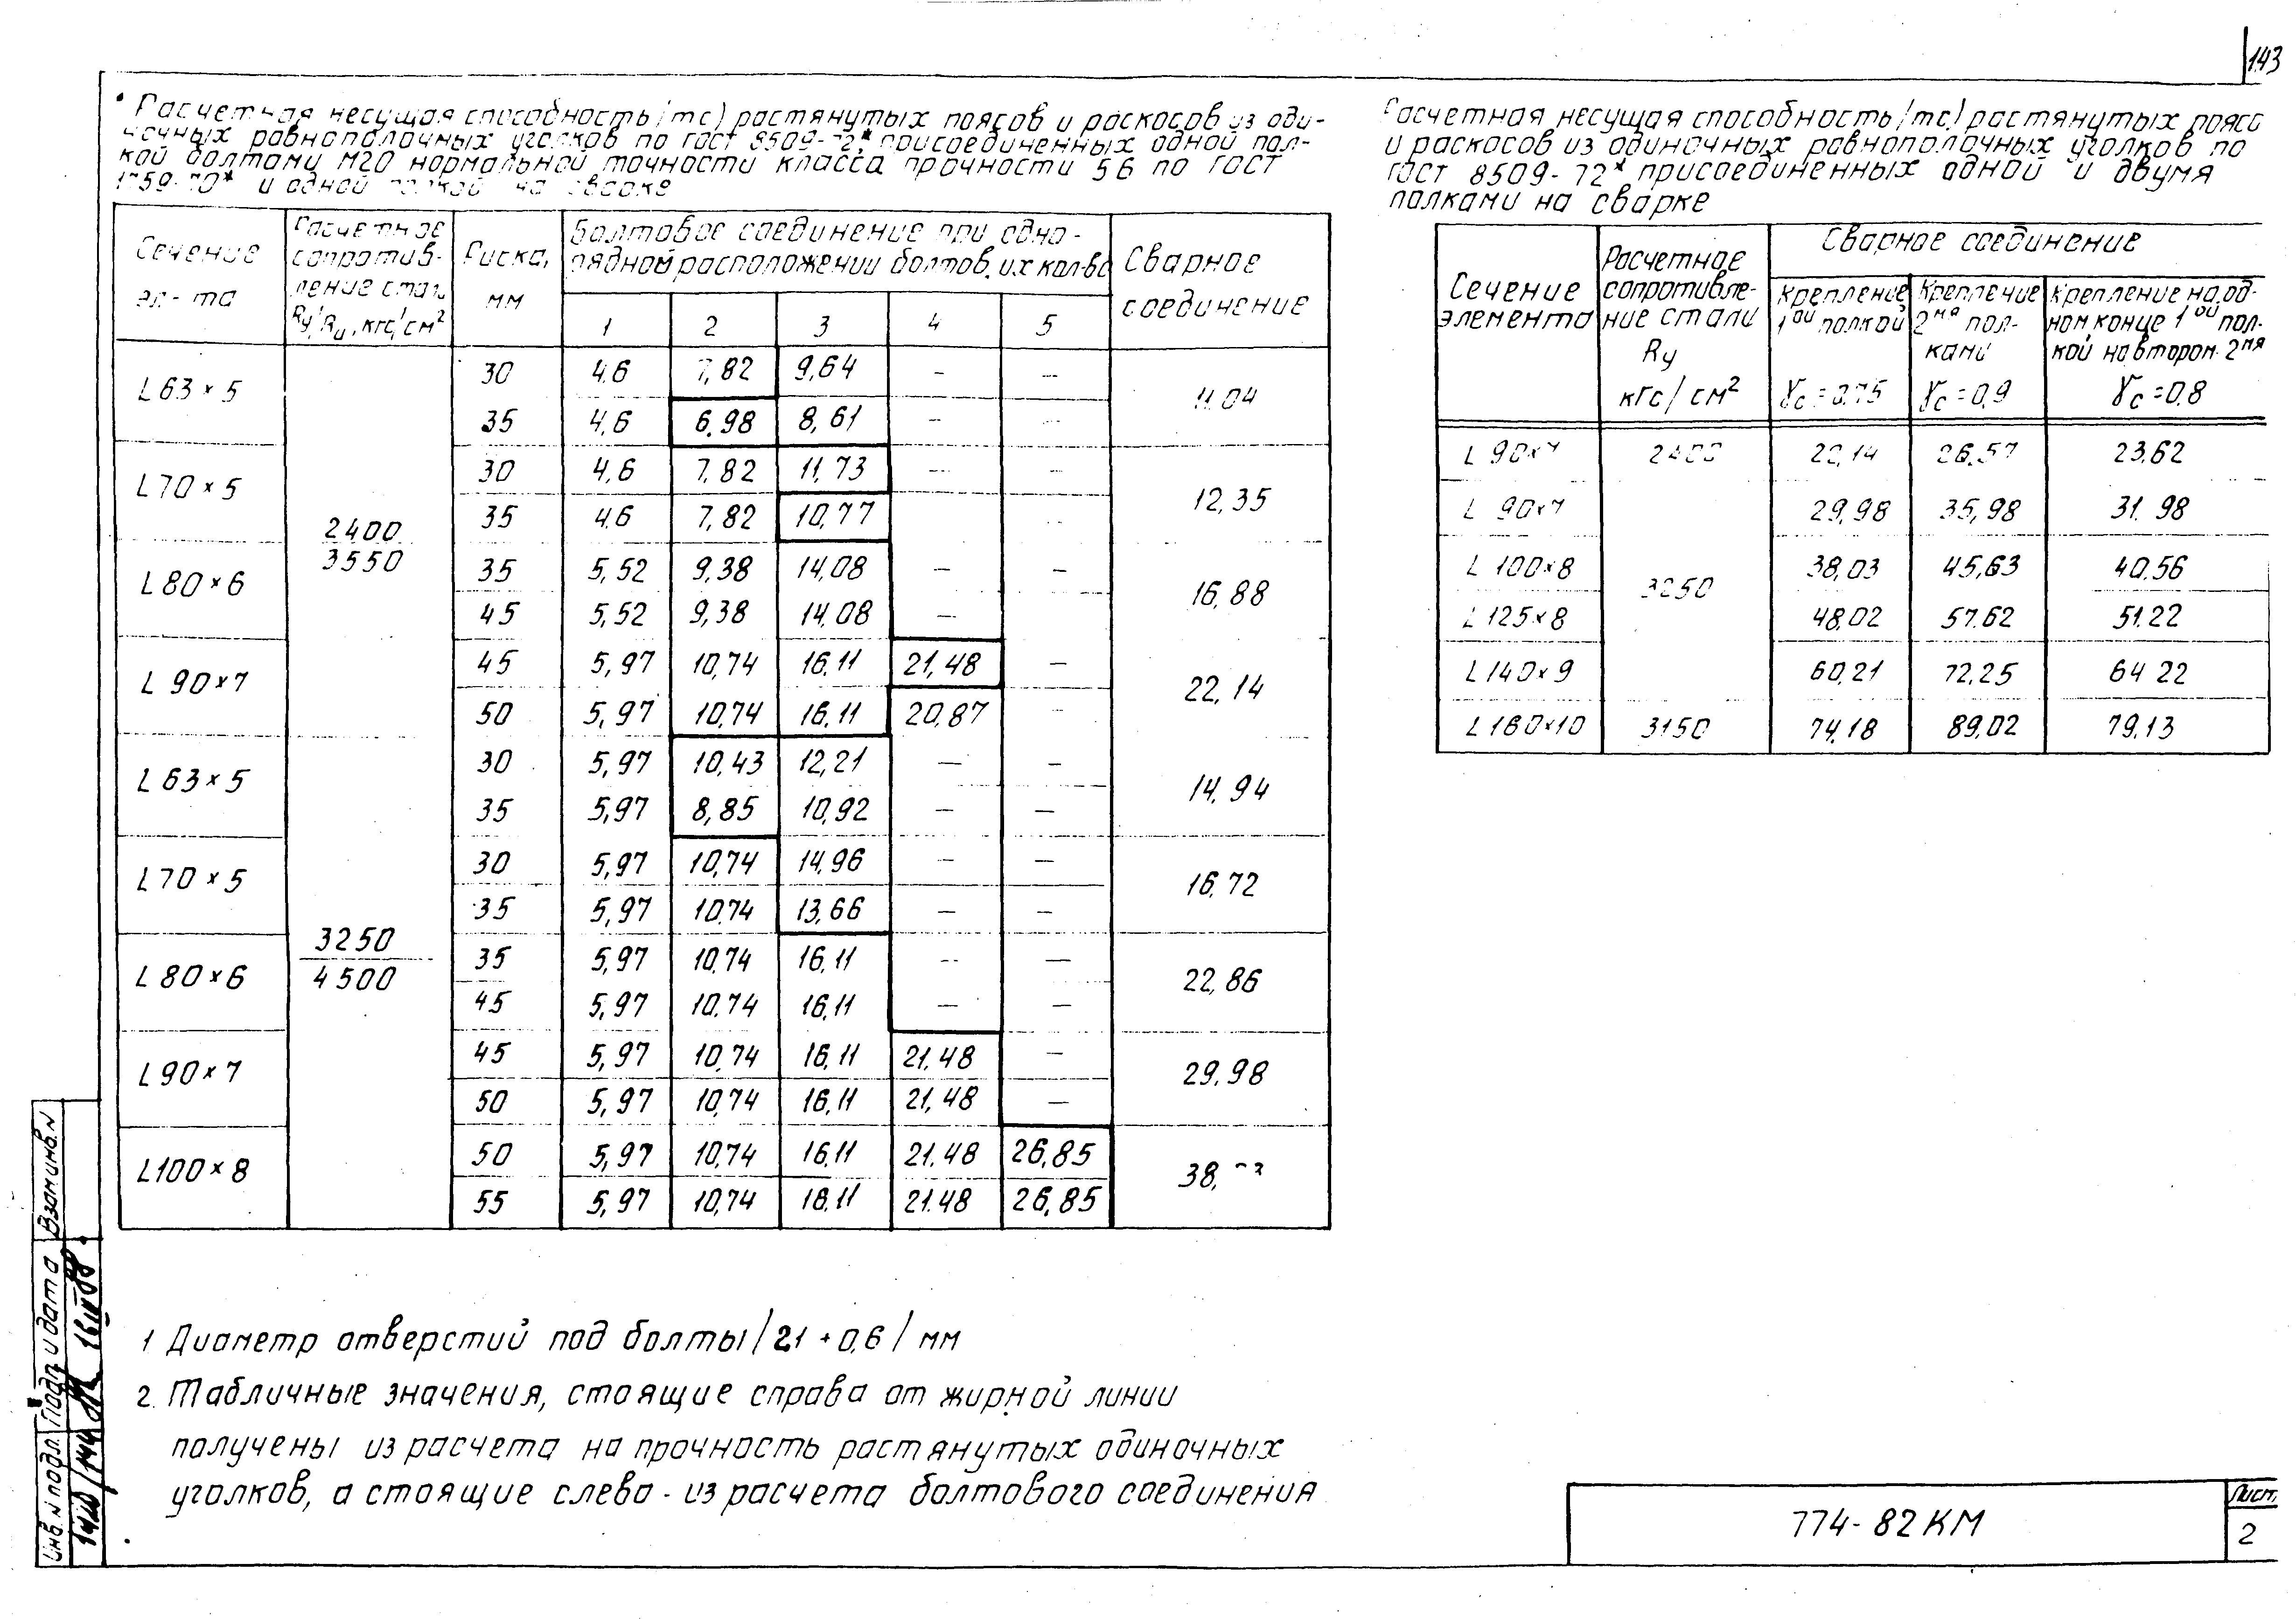 143
Расчетная несущая способность (тс) растянутых поясов и раскосов из оди-
ночных равнополочных уголков по гост 8509-72*, присоединенных одной пол-
кой болтами М20 нормальной точности класса прочности 5.6 по гост
1759-70* и одной полкой на сварке
Сечение эл-та | Расчетное сопротив-ление стали Ry/Ru, кгс/см² | Риска, мм | Болтовое соединение при одно-рядном расположении болтов, их кол-во | Сварное соединение
1 2 3 4 5
L 63×5 | 2400/3550 | 30 | 4.6 | 7,82 | 9,64 | – | – | 11,04
35 | 4,6 | 6,98 | 8,61 | – | –
L 70×5 | 30 | 4,6 | 7,82 | 11,73 | – | – | 12,35
35 | 4,6 | 7,82 | 10,77
L 80×6 | 35 | 5,52 | 9,38 | 14,08 | – | – | 16,88
45 | 5,52 | 9,38 | 14,08 | –
L 90×7 | 45 | 5,97 | 10,74 | 16,11 | 21,48 | – | 22,14
50 | 5,97 | 10,74 | 16,11 | 20,87 | –
L 63×5 | 3250/4500 | 30 | 5,97 | 10,43 | 12,21 | – | – | 14,94
35 | 5,97 | 8,85 | 10,92 | – | –
L 70×5 | 30 | 5,97 | 10,74 | 14,96 | – | – | 16,72
35 | 5,97 | 10,74 | 13,66 | – | –
L 80×6 | 35 | 5,97 | 10,74 | 16,11 | – | – | 22,86
45 | 5,97 | 10,74 | 16,11 | – | –
L 90×7 | 45 | 5,97 | 10,74 | 16,11 | 21,48 | – | 29,98
50 | 5,97 | 10,74 | 16,11 | 21,48 | –
L 100×8 | 50 | 5,97 | 10,74 | 16,11 | 21.48 | 26,85 | 38,
55 | 5,97 | 10,74 | 16,11 | 21.48 | 26,85
Расчетная несущая способность (тс) растянутых поясо
и раскосов из одиночных равнополочных уголков по
гост 8509-72* присоединенных одной и двумя
полками на сварке
Сечение элемента | Расчетное сопротивле-ние стали Ry кгс/см² | Сварное соединение
Крепление 1ой полкой γc=0,75 | Крепление 2мя пол-ками γc=0,9 | Крепление на од-ном конце 1ой пол-кой на втором 2мя γc=0,8
L 90×7 | 2400 | 22,14 | 26,57 | 23,62
L 90×7 | 3250 | 29,98 | 35,98 | 31.98
L 100×8 | 38,03 | 45,63 | 40,56
L 125×8 | 48,02 | 57,62 | 51,22
L 140×9 | 60,21 | 72,25 | 64 22
L 160×10 | 3150 | 74,18 | 89,02 | 79,13
1 Диаметр отверстий под болты /21+0,6/ мм
2. Табличные значения, стоящие справа от жирной линии
получены из расчета на прочность растянутых одиночных
уголков, а стоящие слева - из расчета болтового соединения
774-82КМ
Лист
2
Взам инв. N
Подп и дата
Инв. N подл.